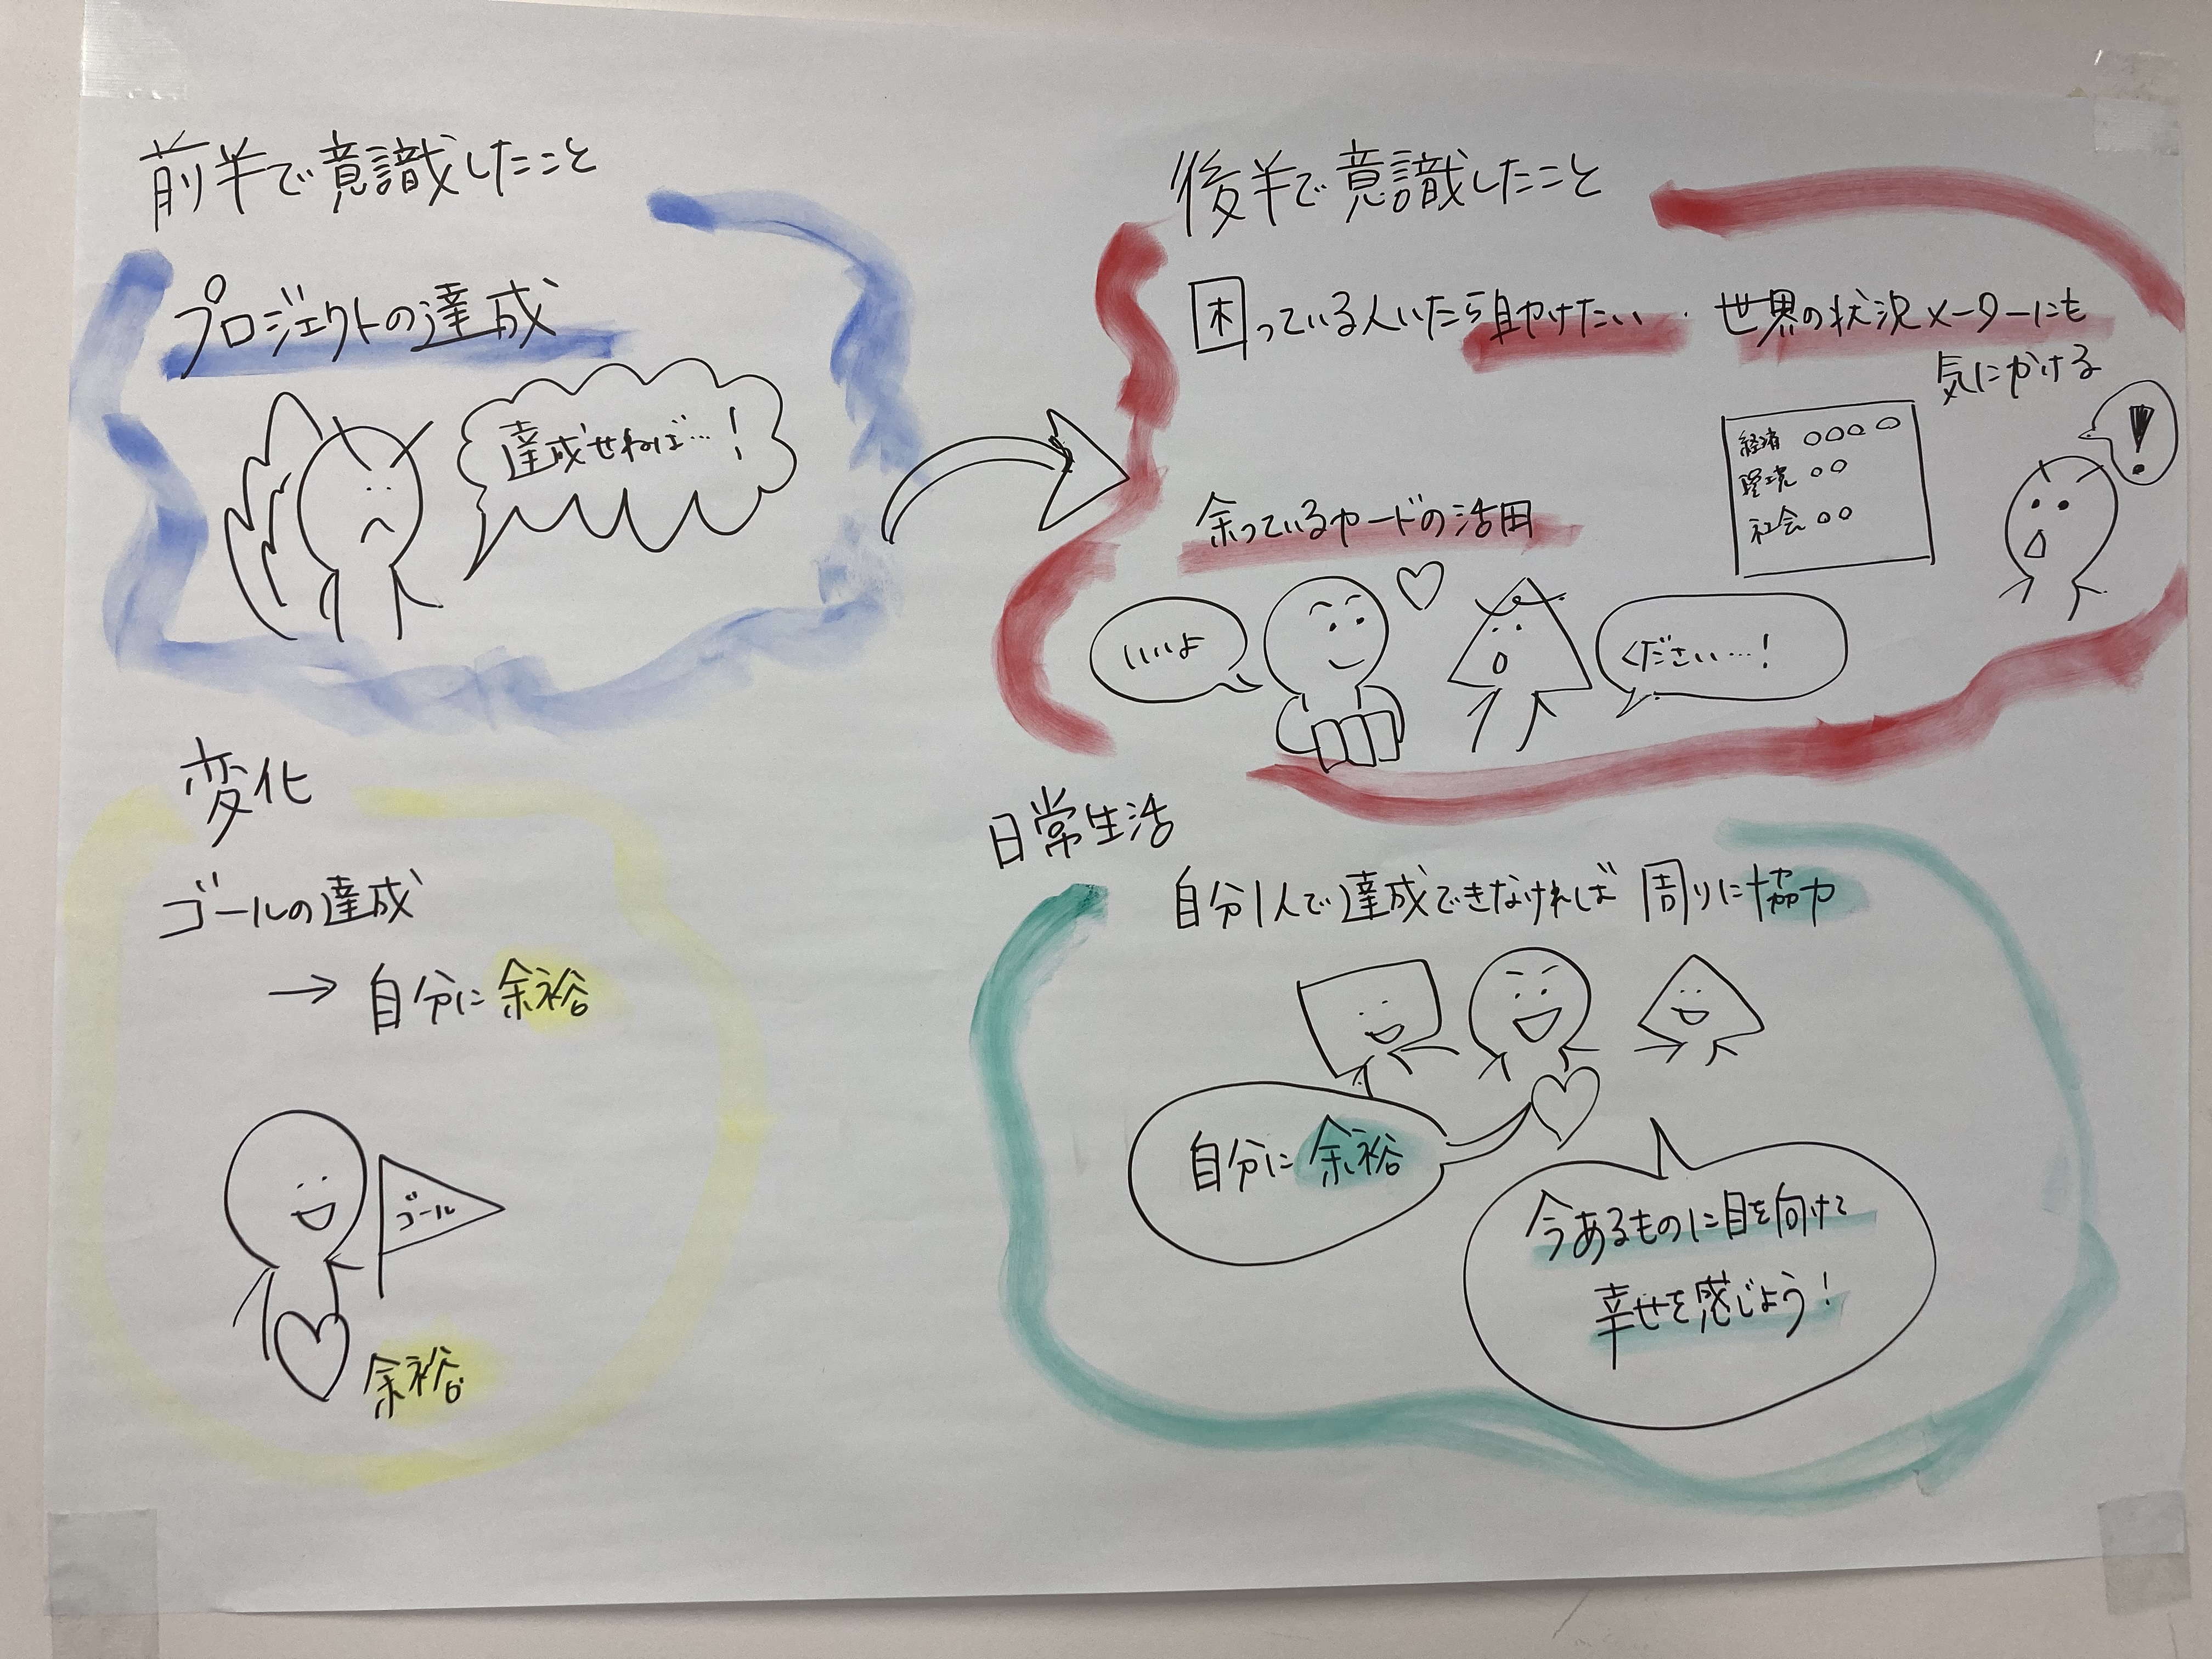 前半で意識したこと
プロジェクトの達成
達成せねば…!
後半で意識したこと
困っている人いたら助けたい
世界の状況メーターにも
気にかける
経済 ○○○○
環境 ○○
社会 ○○
!
余っているカードの活用
いいよ
ください…!
変化
ゴールの達成
→ 自分に余裕
ゴール
余裕
日常生活
自分1人で達成できなければ 周りに協力
自分に余裕
今あるものに目を向けて
幸せを感じよう!